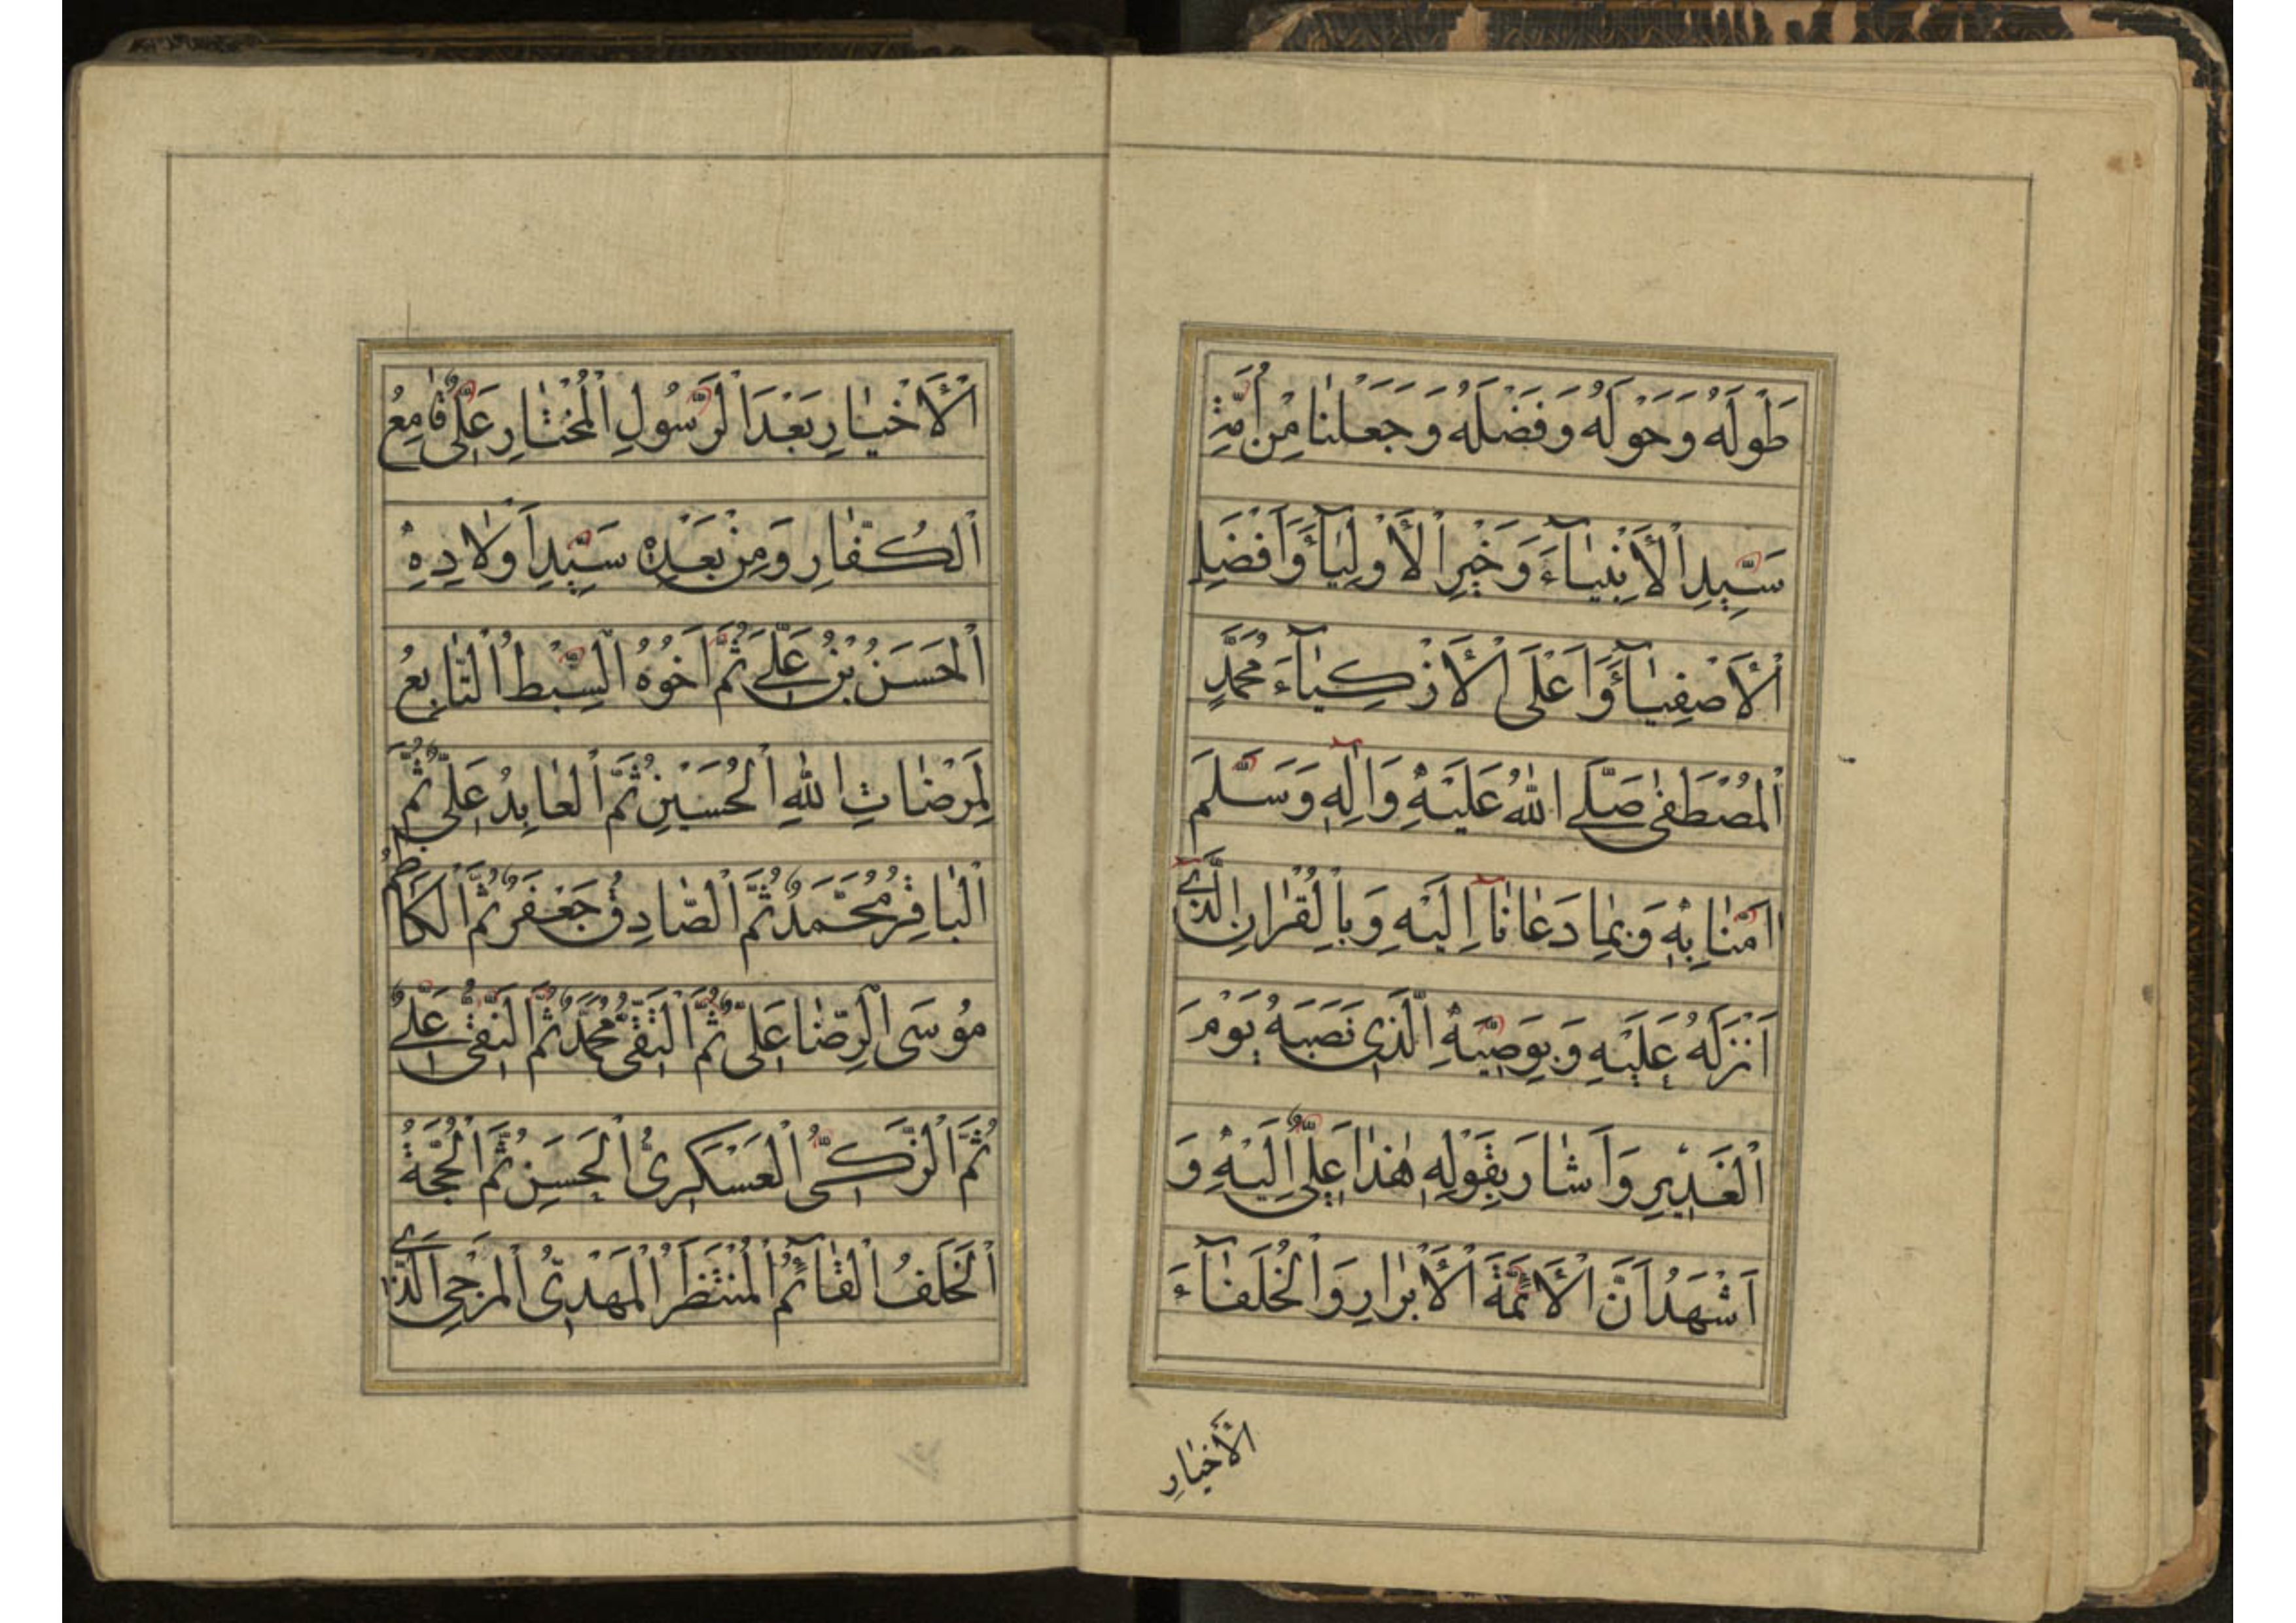 طَوْلَهُ وَحَوْلَهُ وَفَضْلَهُ وَجَعَلَنٰا مِنْ اُمَّةِ
سَيِّدِ الْأَنْبِيٰآءِ وَخَيْرِ الْأَوْلِيٰآءِ وَاَفْضَلِ
الْأَصْفِيٰآءِ وَاَعْلَى الْأَزْكِيٰآءِ مُحَمَّدٍ
الْمُصْطَفٰى صَلَّى اللهُ عَلَيْهِ وَاٰلِهٖ وَسَلَّمَ
اٰمَنّٰا بِهٖ وَبِمٰا دَعٰانٰآ اِلَيْهِ وَبِالْقُرْاٰنِ الَّذٖي
اَنْزَلَهُ عَلَيْهِ وَبِوَصِيِّهِ الَّذٖي نَصَبَهُ يَوْمَ
الْغَدٖيرِ وَاَشٰارَ بِقَوْلِهٖ هٰذٰا عَلِيٌّ اِلَيْهِ وَ
اَشْهَدُ اَنَّ الْأَئِمَّةَ الْأَبْرٰارِ وَالْخُلَفٰآءَ
الْأَخْيٰارِ
الْأَخْيٰارِ بَعْدَ الرَّسُولِ الْمُخْتٰارِ عَلِيٌّ قٰامِعُ
الْكُفّٰارِ وَمِنْ بَعْدِهٖ سَيِّدِ اَوْلٰادِهٖ
الْحَسَنُ بْنُ عَلِيٍّ ثُمَّ اَخُوهُ السِّبْطُ التّٰابِعُ
لِمَرْضٰاتِ اللهِ الْحُسَيْنِ ثُمَّ الْعٰابِدُ عَلِيٌّ ثُمَّ
الْبٰاقِرُ مُحَمَّدٌ ثُمَّ الصّٰادِقُ جَعْفَرٌ ثُمَّ الْكٰاظِمُ
مُوسَى الرِّضٰا عَلِيٌّ ثُمَّ التَّقِيُّ مُحَمَّدٌ ثُمَّ النَّقِيُّ عَلِيٌّ
ثُمَّ الزَّكِيُّ الْعَسْكَرِيُّ الْحَسَنِ ثُمَّ الْحُجَّةُ
الْخَلَفُ الْقٰآئِمُ الْمُنْتَظَرُ الْمَهْدِيُّ الْمُرْجَى الَّذٖي